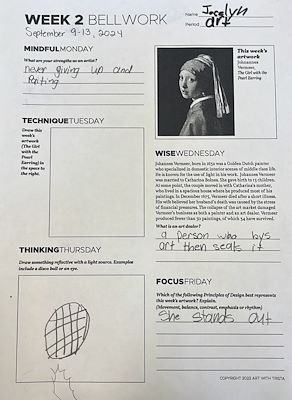 WEEK 2 BELLWORK
September 9-13, 2024
Name Jocelyn
Period art
MINDFULMONDAY
What are your strengths as an artist?
never giving up and
Paiting
This week's
artwork
Johannes
Vermeer,
The Girl with the
Pearl Earring
TECHNIQUETUESDAY
Draw this
week's artwork
(The Girl
with the
Pearl
Earring) in
the space to
the right.
WISEWEDNESDAY
Johannes Vermeer, born in 1632 was a Golden Dutch painter
who specialized in domestic interior scenes of middle class life.
He is known for the use of light in his work. Johannes Vermeer
was married to Catharina Bolnes. She gave birth to 15 children.
At some point, the couple moved in with Catharina's mother,
who lived in a spacious house where he produced most of his
paintings. In December 1675, Vermeer died after a short illness.
His wife believed her husband's death was caused by the stress
of financial pressures. The collapse of the art market damaged
Vermeer's business as both a painter and an art dealer. Vermeer
produced fewer than 50 paintings, of which 34 have survived.
What is an art dealer?
a person who bys
art then seals it
THINKINGTHURSDAY
Draw something reflective with a light source. Examples
include a disco ball or an eye.
FOCUSFRIDAY
Which of the following Principles of Design best represents
this week's artwork? Explain.
(Movement, balance, contrast, emphasis or rhythm)
She stands out
COPYRIGHT 2023 ART WITH TRISTA